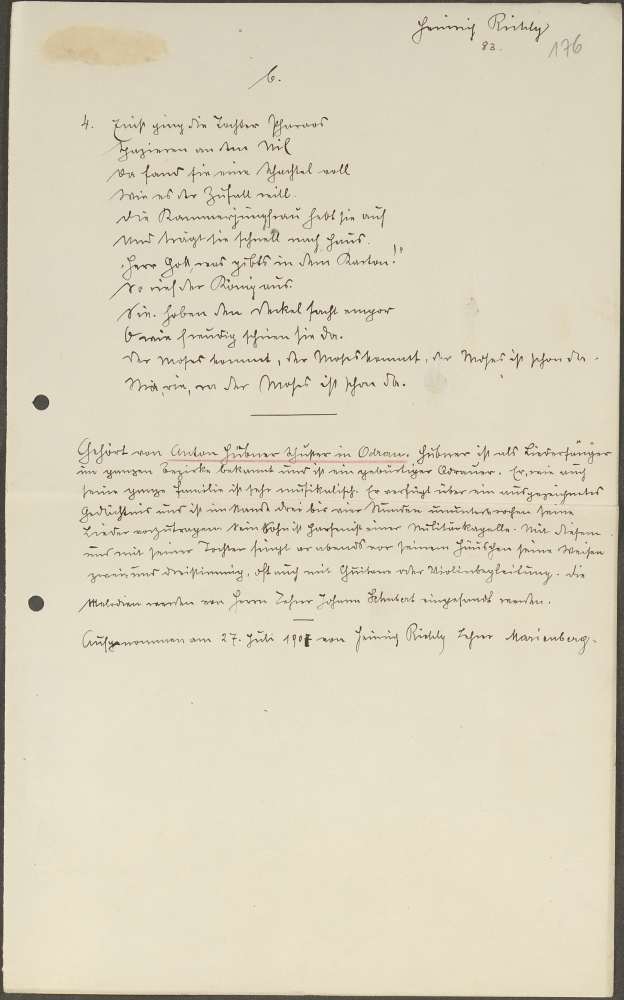 Heinrich Richly
83.
176
6.
4. Einst ging die Tochter Pharaos
Spazieren an dem Nil
Da fand sie eine Schachtel voll
Wie es der Zufall will.
Die Kammerjungfrau hebt sie auf
Und trägt sie schnell nach Haus.
"Herr Gott, was gibts in dem Karton!"
So rief der König aus.
Sie hoben den Deckel sacht empor
O wie freudig schrien sie da.
Der Moses kommt, der Moses kommt, der Moses ist schon da.
der Moses ist schon da.
Gehört von Anton Hübner Schuster in Odrau. Hübner ist als Liedersänger
im ganzen Bezirke bekannt und ist ein gebürtiger Odrauer. Er, wie auch
seine ganze Familie ist sehr musikalisch. Er verfügt über ein ausgezeichnetes
Gedächtnis und ist im Stande drei bis vier Stunden ununterbrochen seine
Lieder vorzutragen. Sein Sohn ist Harfenist einer Militärkapelle. Mit diesem
und mit seiner Tochter singt er abends vor seinem Häuschen seine Weisen
zwei und dreistimmig, oft auch mit Guitarre oder Violinbegleitung. Die
Melodien werden von Herrn Lehrer Johann Schubert eingesandt werden.
Aufgenommen am 27. Juli 1907 von Heinrich Richly Lehrer Marienberg.